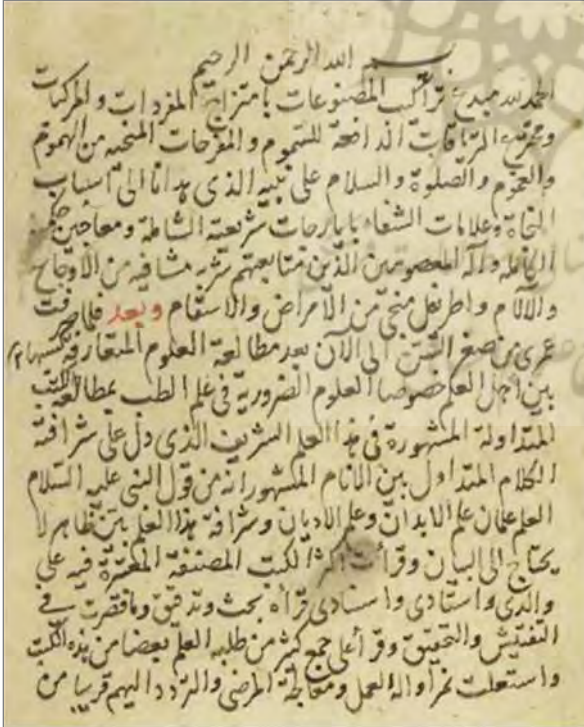 بسم الله الرحمن الرحيم
الحمد لله مبدع تراكيب المصنوعات بامتزاج المفردات والمركبات
ومخترع الترياقات الدافعة للسموم والمفرحات المنجيه من الهموم
والغموم والصلوة والسلام على نبيه الذى هدانا الى اسباب
النجاة وعلامات الشفاء بايارجات شريعته الشاملة ومعاجين
الكاملة وآله المعصومين الذين متابعتهم شربه مشافيه من الاوجاع
والآلام واطريفل منجى من الامراض والاسقام وبعد فلما صرفت
عمرى من صغر السن الى الآن بعد مطالعة العلوم المتعارفة
بين اهل العلم خصوصا العلوم الضرورية فى علم الطب بمطالعة الكتب
المتداولة المشهورة فى هذا العلم الشريف الذى دل على شرافته
الكلام المتداول بين الانام المشهور انه من قول النبى عليه السلام
العلم علمان علم الابدان وعلم الاديان وشرافة هذا العلم بين ظاهر لا
يحتاج الى البيان وقرأت اكثر الكتب المصنفة المعتبرة فيه على
والدى واستادى واسنادى قرأة بحث وتدقيق وماقصرت فى
التفتيش والتحقيق وقرأ على جمع كثير من طلبه العلم بعضا من هذه الكتب
واستعلت بمزاولة العمل ومعالجة المرضى والتردد اليهم قريبا من